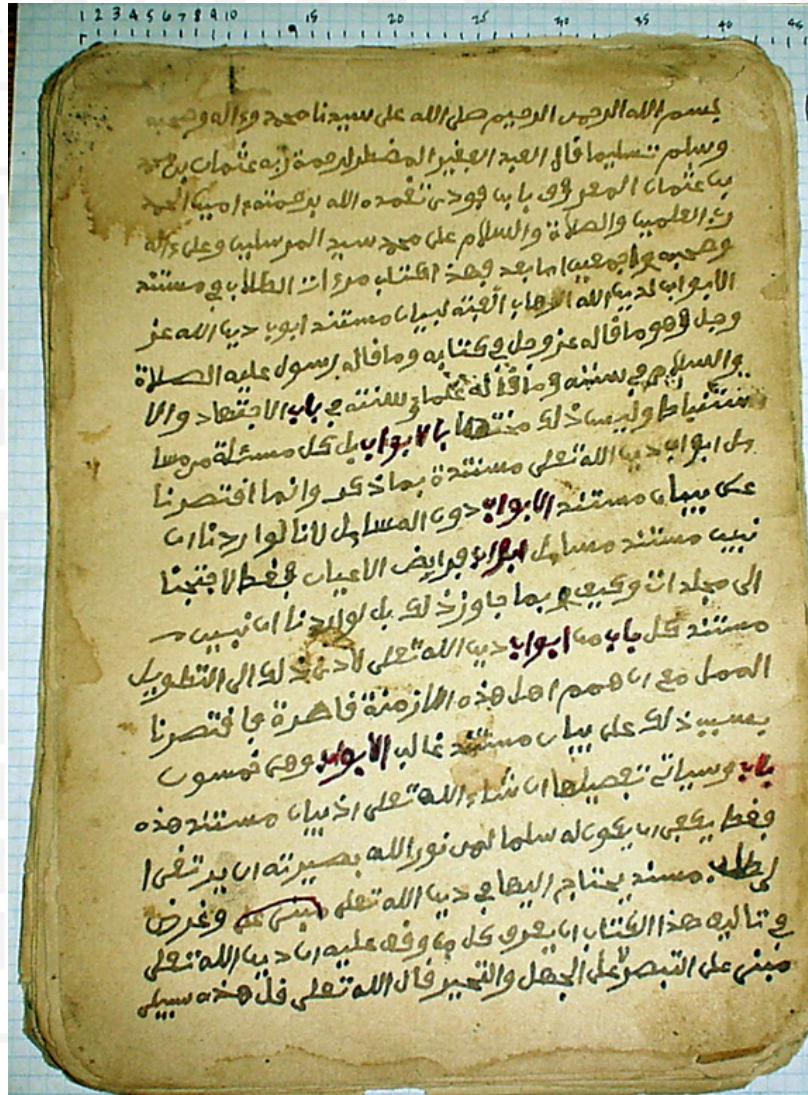 1 2 3 4 5 6 7 8 9 10 15 20 25 30 35 40 45
بسم الله الرحمن الرحيم صلى الله على سيدنا محمد وءاله وصحبه
وسلم تسليما قال العبد الفقير المضطر لرحمة ربه عثمان بن محمد
بن عثمان المعروف بابن فودي تغمده الله برحمته ءامين الحمد
رب العلمين والصلاة والسلام على محمد سيد المرسلين وعلى ءاله
وصحبه اجمعين اما بعد فهذ الكتاب مرءات الطلاب في مستند
الابواب لدين الله الوهاب الفته لبيان مستند ابوب دين الله عز
وجل وهو ما قاله عز وجل في كتابه وما قاله رسول عليه الصلاة
والسلام في سنته وما قاله علماء سنته في باب الاجتهاد والا
ستنباط وليس ذلك مختصا بالابواب بل كل مسئلة من مسا
ىل ابواب دين الله تعلى مستندة بما ذكر وانما اقتصرنا
على بيان مستند الابواب دون المسايل لانا لو اردنا ان
نبين مستند مسايل ابواب فرايض الاعيان فقط لاحتجنا
الى مجلدات وكيف بما جاوز ذلك بل لو اردنا ان نبين
مستند كل باب من ابواب دين الله تعلى لادى ذلك الى التطويل
الممل مع ان همم اهل هذه الازمنة قاصرة فاقتصرنا
بسبب ذلك على بيان مستند غالب الابواب وهي خمسون
باب وسياتي تفصيلها ان شاء الله تعلى اذ بيان مستند هذه
فقط يكفي ان يكون له سلما لمن نور الله بصيرته ان يرتقى ا
لطلب مسند يحتاج اليها في دين الله تعلى مبنى على وغرض
في تاليف هذا الكتاب ان يعرف كل من وقف عليه ان دين الله تعلى
مبنى على التبصر لا على الجهل والتحير قال الله تعلى قل هذه سبيلى